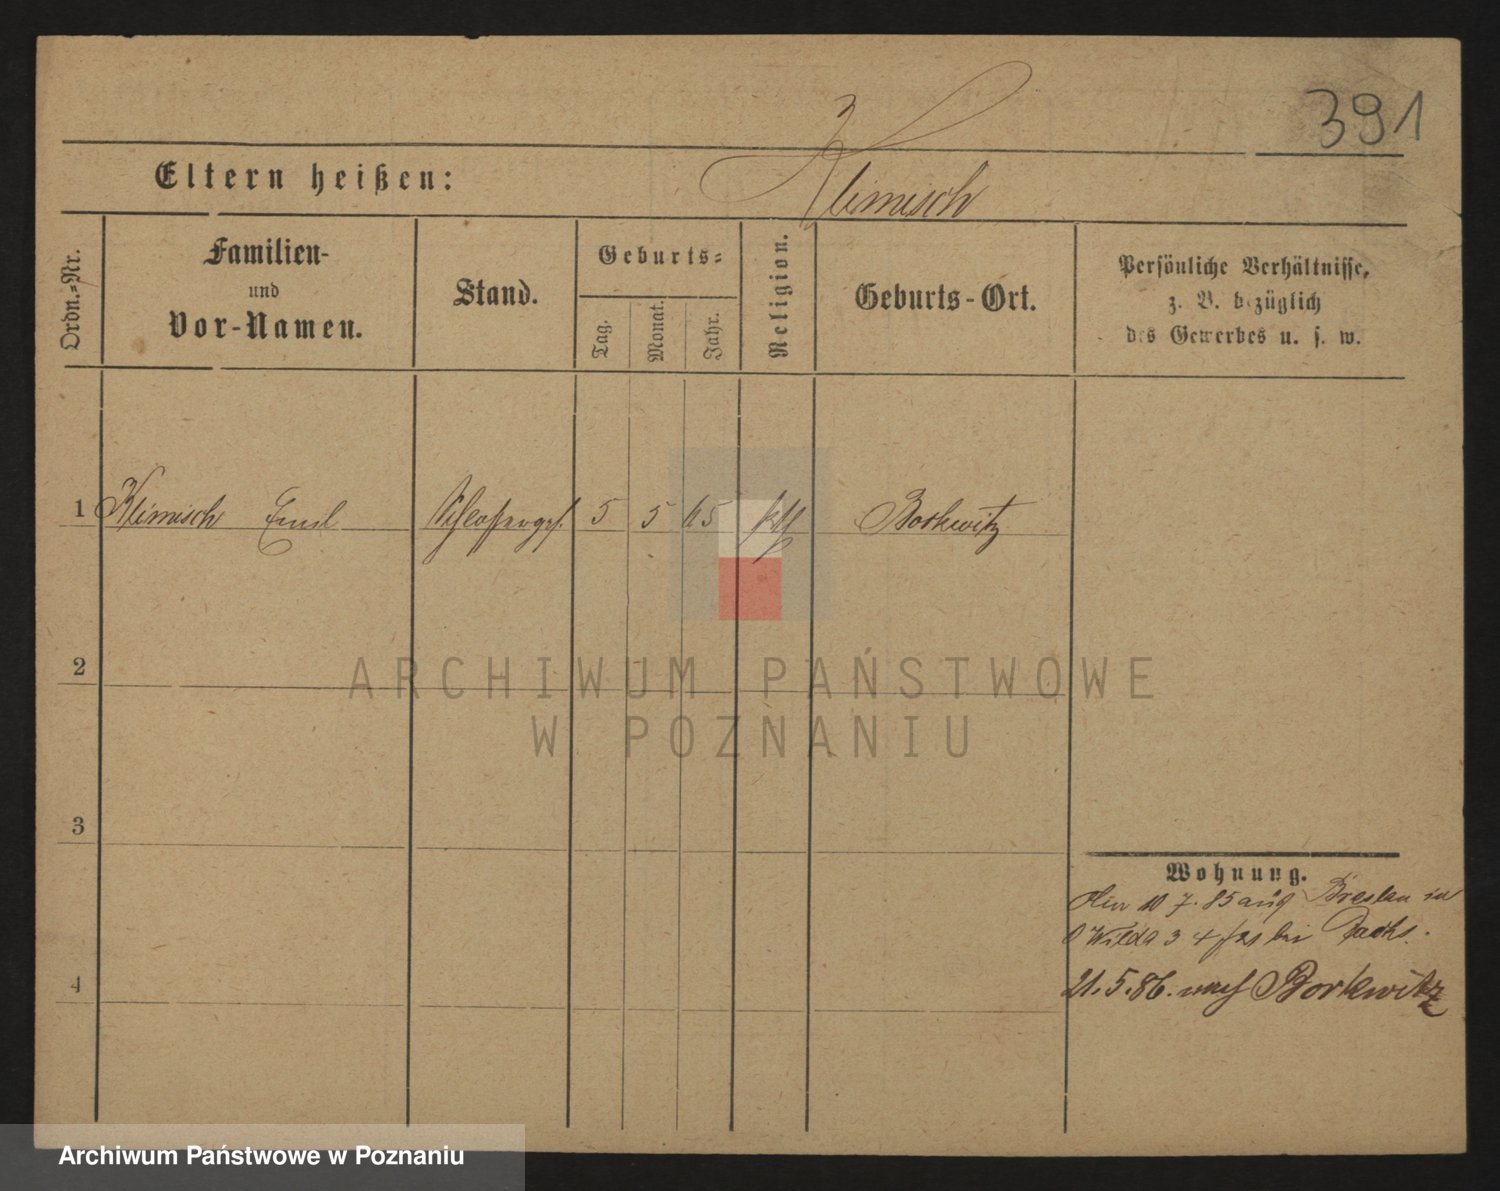 391
Eltern heißen:
Klimisch
Ordn.=Nr.
Familien-
und
Vor-Namen.
Stand.
Geburts=
Tag.
Monat.
Jahr.
Religion.
Geburts-Ort.
Persönliche Verhältnisse,
z. B. bezüglich
des Gewerbes u. s. w.
1 Klimisch Emil Schlosserges. 5 5 65 Borkwitz
2
3
4
Wohnung.
10 7. 85 aus Breslau in
O Wilda 3 bei
21. 5. 86. nach Borkwitz
ARCHIWUM PAŃSTWOWE
W POZNANIU
Archiwum Państwowe w Poznaniu